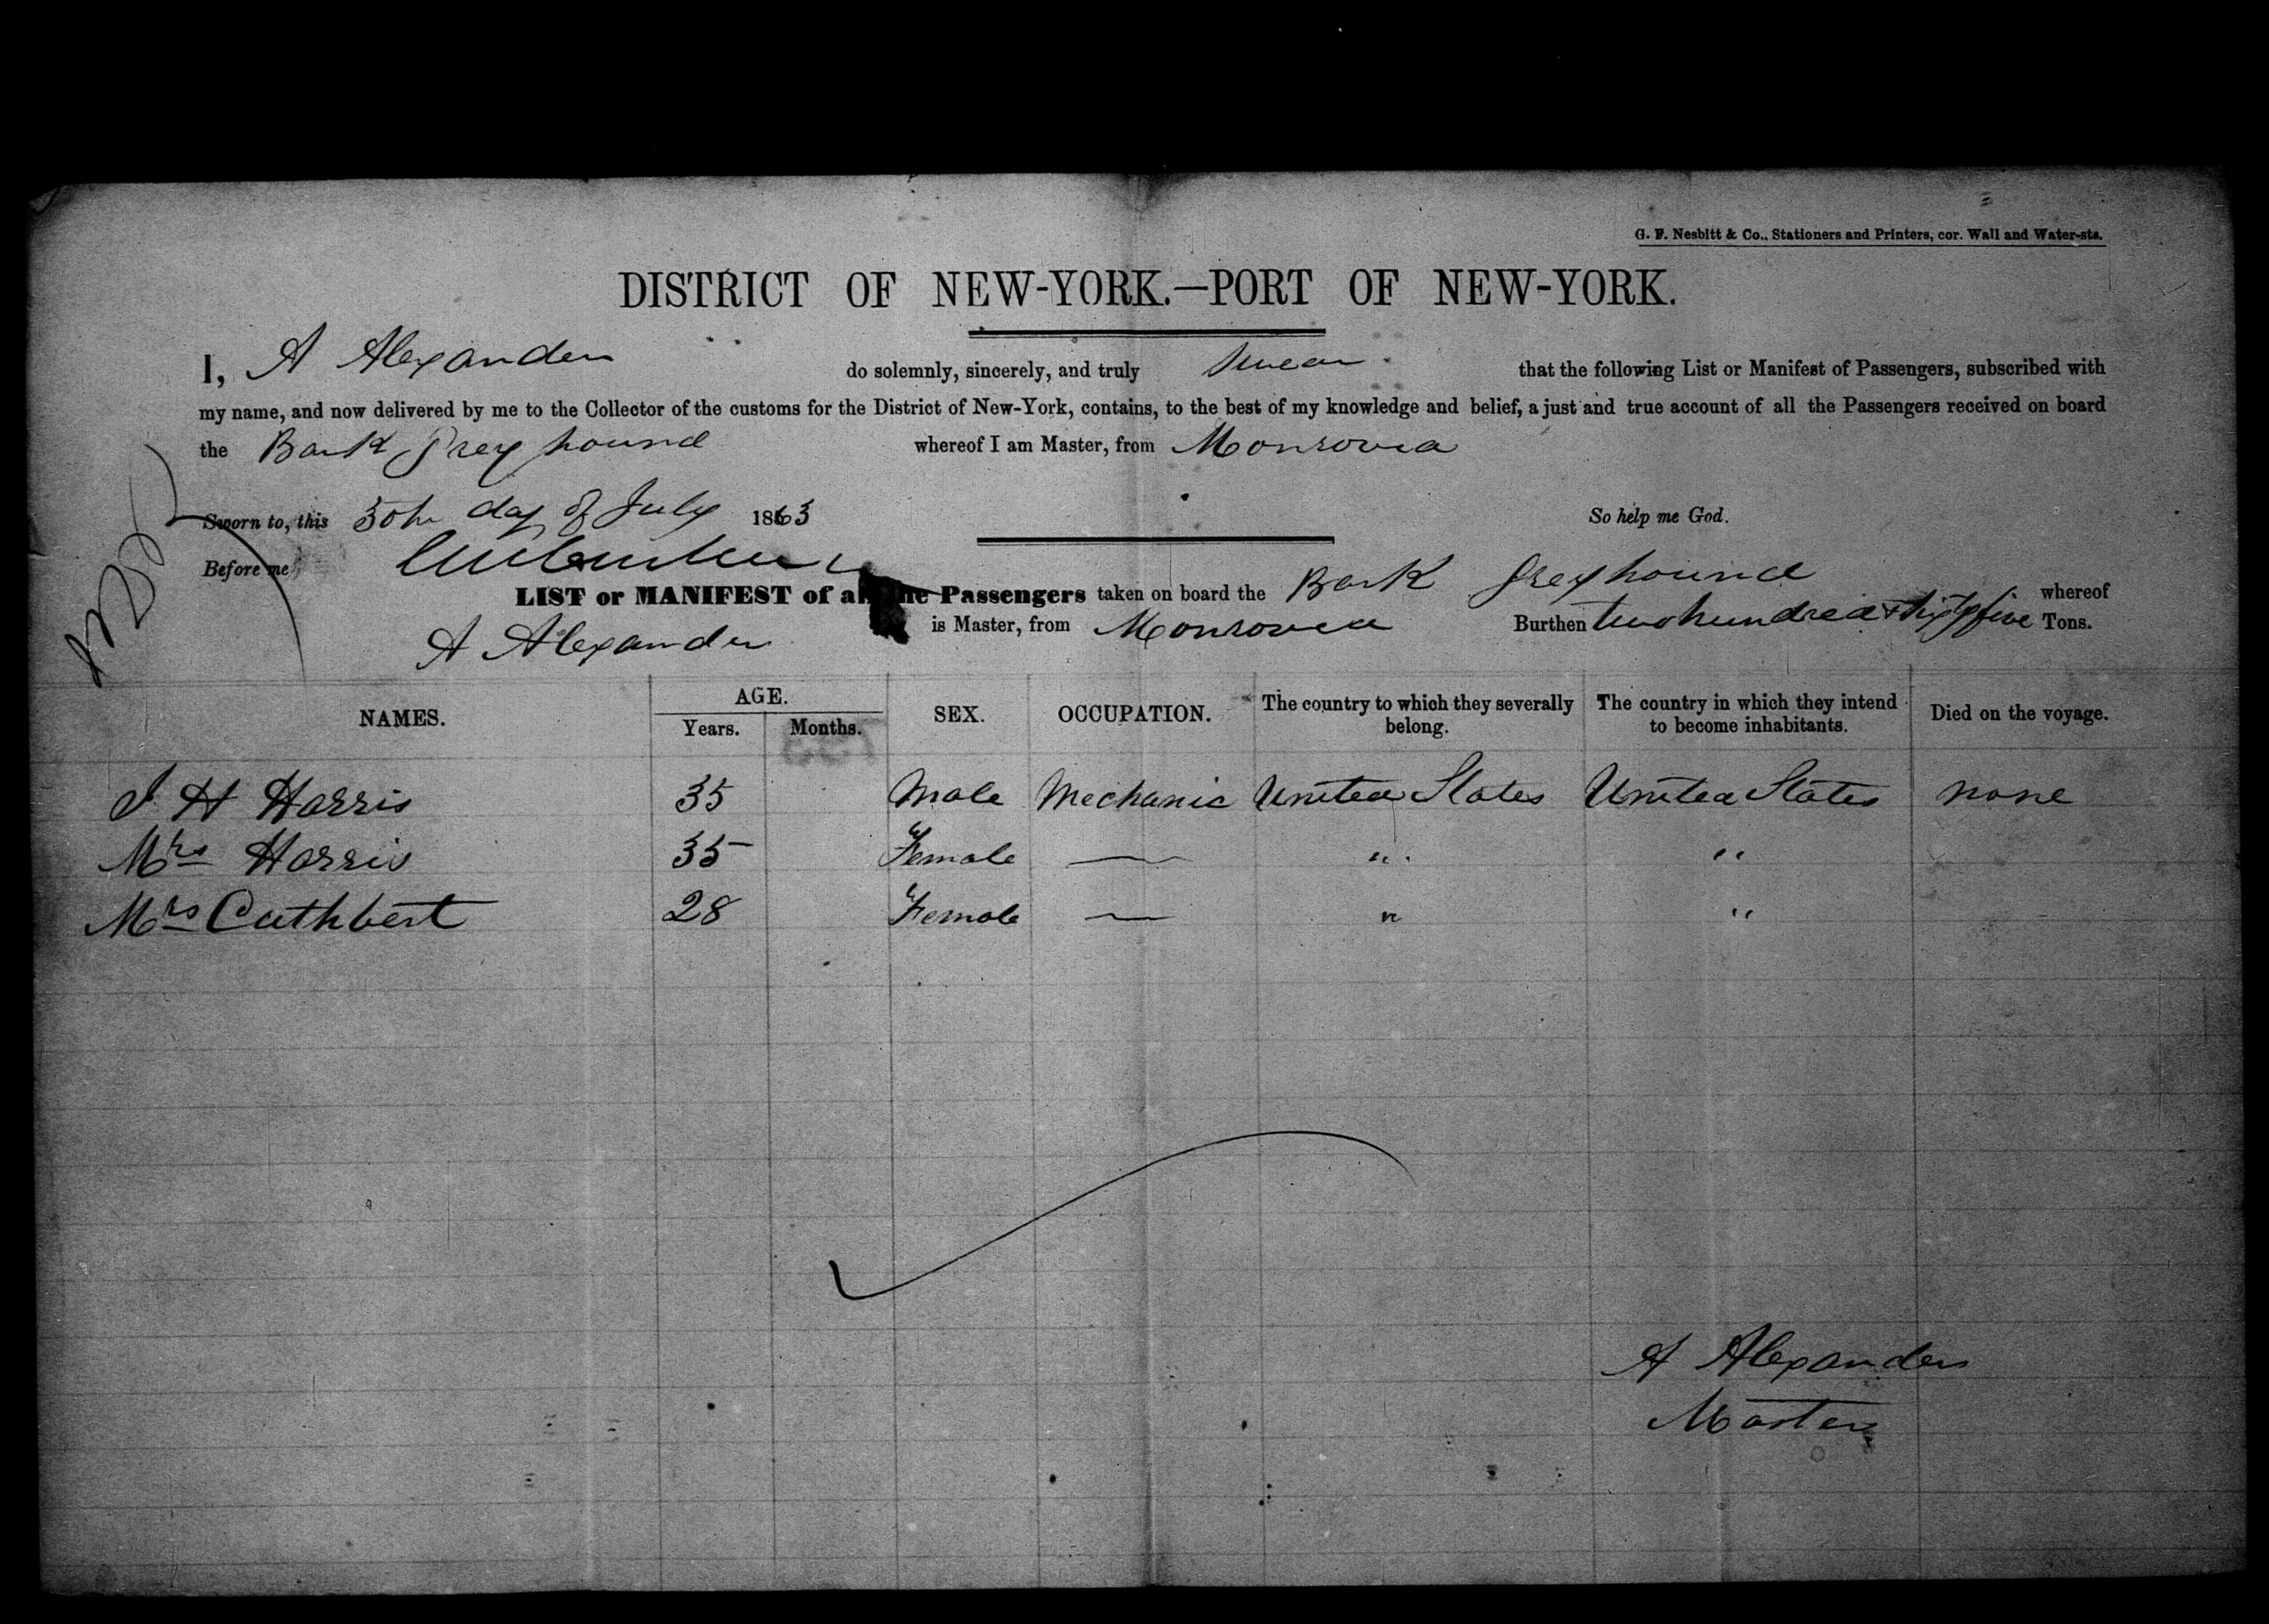 G. F. Nesbitt & Co., Stationers and Printers, cor. Wall and Water-sts.
DISTRICT OF NEW-YORK.—PORT OF NEW-YORK.
I, A Alexander do solemnly, sincerely, and truly swear that the following List or Manifest of Passengers, subscribed with
my name, and now delivered by me to the Collector of the customs for the District of New-York, contains, to the best of my knowledge and belief, a just and true account of all the Passengers received on board
the Bark Greyhound whereof I am Master, from Monrovia
Sworn to, this 30th day of July 1863 So help me God.
Before me
LIST or MANIFEST of all the Passengers taken on board the Bark Greyhound whereof
A Alexander is Master, from Monrovia Burthen two hundred & five Tons.
NAMES. AGE. Years. Months. SEX. OCCUPATION. The country to which they severally belong. The country in which they intend to become inhabitants. Died on the voyage.
J H Harris 35 Male Mechanic United States United States none
Mrs Harris 35 Female — " "
Mrs Cuthbert 28 Female — " "
A Alexander
Master